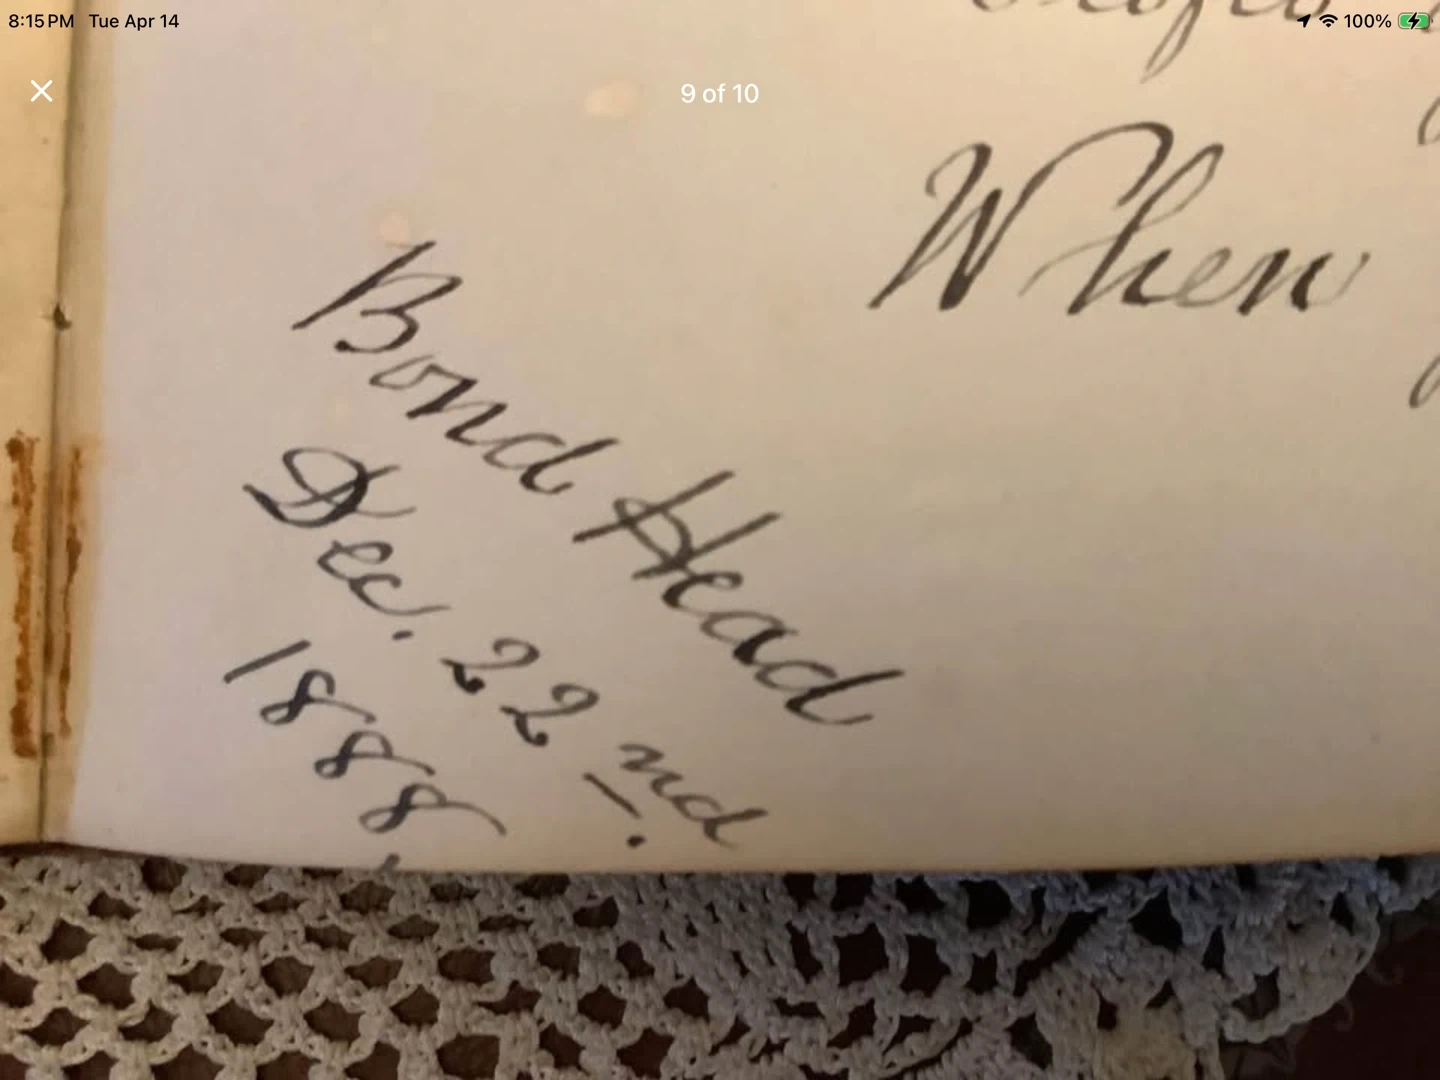 8:15 PM Tue Apr 14
100%
9 of 10
When
Bond Head
Dec. 22nd.
1888.